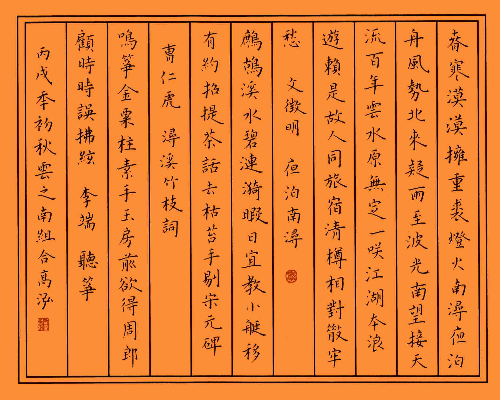 春寒漠漠擁重裘燈火南潯夜泊
舟風勢北來疑雨至波光南望接天
流百年雲水原無定一咲江湖本浪
遊賴是故人同旅宿清樽相對散牢
愁 文徵明 夜泊南潯
鸕鶿溪水碧漣漪暇日宜教小艇移
有約招提茶話去枯苔手剔宋元碑
曹仁虎 潯溪竹枝詞
鳴箏金粟柱素手玉房前欲得周郎
顧時時誤拂絃 李端 聽箏
丙戌季初秋雲之南組合高泓